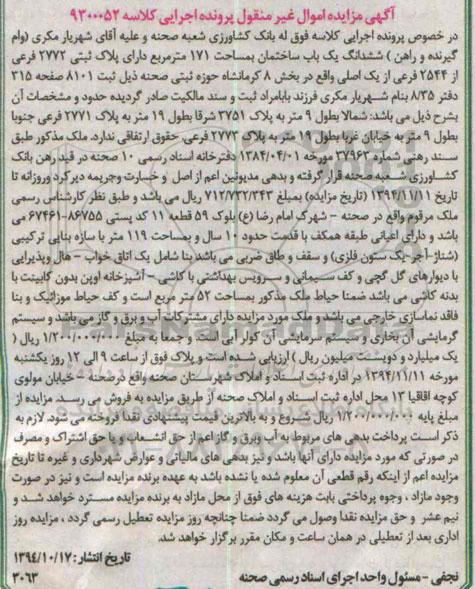 آگهی مزایده اموال غیر منقول پرونده اجرایی کلاسه ۹۳۰۰۰۵۲
در خصوص پرونده اجرایی کلاسه فوق له بانک کشاورزی شعبه صحنه و علیه آقای شهریار مکری (وام
گیرنده و راهن ) ششدانگ یک باب ساختمان بمساحت ۱۷۱ مترمربع دارای پلاک ثبتی ۲۷۷۲ فرعی
از ۲۵۴۴ فرعی از یک اصلی واقع در بخش ۸ کرمانشاه حوزه ثبتی صحنه ذیل ثبت ۸۱۰۱ صفحه ۳۱۵
دفتر ۸/۳۵ بنام شهریار مکری فرزند بابامراد ثبت و سند مالکیت صادر گردیده حدود و مشخصات آن
بشرح ذیل می باشد: شمالا بطول ۹ متر به پلاک ۳۷۵۱ شرقا بطول ۱۹ متر به پلاک ۲۷۷۱ فرعی جنوبا
بطول ۹ متر به خیابان غربا بطول ۱۹ متر به پلاک ۲۷۷۳ فرعی، حقوق ارتفاقی ندارد. ملک مذکور طبق
سند رهنی شماره ۳۷۹۶۳ مورخه ۱۳۸۴/۰۴/۰۱ دفترخانه اسناد رسمی ۱۰ صحنه در قید رهن بانک
کشاورزی شعبه صحنه قرار گرفته و بدهی مدیونین اعم از اصل و خسارت وجریمه دیرکرد وروزانه تا
تاریخ ۱۳۹۴/۱۱/۱۱ (تاریخ مزایده) بمبلغ ۷۱۲/۷۳۲/۳۴۳ ریال می باشد و طبق نظر کارشناس رسمی
ملک مرقوم واقع در صحنه - شهرک امام رضا (ع) بلوک ۵۹ قطعه ۱۱ کد پستی ۸۶۷۵۵-۶۷۴۶۱ می
باشد و دارای اعیانی طبقه همکف با قدمت حدود ۱۰ سال و بمساحت ۱۱۹ متر با سازه بنایی ترکیبی
(شناژ-آجر-یک ستون فلزی) و سقف و طاق ضربی می باشد بنا شامل یک اتاق خواب - هال وپذیرایی
با دیوارهای گل گچی و کف سیمانی و سرویس بهداشتی با کاشی - آشپزخانه اوپن بدون کابینت با
بدنه کاشی می باشد ضمنا حیاط ملک مذکور بمساحت ۵۲ متر مربع است و کف حیاط موزائیک و بنا
فاقد نماسازی خارجی می باشد و ملک مورد مزایده دارای مشترکات آب و برق و گاز می باشد و سیستم
گرمایشی آن بخاری و سیستم سرمایشی آن کولر آبی است. و جمعا به مبلغ ۱/۲۰۰/۰۰۰/۰۰۰ ریال (
یک میلیارد و دویست میلیون ریال ) ارزیابی شده است و پلاک فوق از ساعت ۹ الی ۱۲ روز یکشنبه
مورخه ۱۳۹۴/۱۱/۱۱ در اداره ثبت اسناد و املاک شهرستان صحنه واقع درصحنه - خیابان مولوی
کوچه اقاقیا ۱۳ محل اداره ثبت اسناد و املاک صحنه از طریق مزایده به فروش می رسد. مزایده از
مبلغ پایه ۱/۲۰۰/۰۰۰/۰۰۰ ریال شروع و به بالاترین قیمت پیشنهادی نقدا فروخته می شود. لازم به
ذکر است پرداخت بدهی های مربوط به آب وبرق و گاز اعم از حق انشعاب و یا حق اشتراک و مصرف
در صورتی که مورد مزایده دارای آنها باشد و نیز بدهی های مالیاتی و عوارض شهرداری و غیره تا تاریخ
مزایده اعم از اینکه رقم قطعی آن معلوم شده یا نشده باشد به عهده برنده مزایده است و نیز در صورت
وجود مازاد ، وجوه پرداختی بابت هزینه های فوق از محل مازاد به برنده مزایده مسترد خواهد شد و
نیم عشر و حق مزایده نقدا وصول می گردد ضمنا چنانچه روز مزایده تعطیل رسمی گردد ، مزایده روز
اداری بعد از تعطیلی در همان ساعت و مکان مقرر برگزار خواهد شد.
تاریخ انتشار: ۱۳۹۴/۱۰/۱۷
نجفی - مسئول واحد اجرای اسناد رسمی صحنه
۳۰۶۳